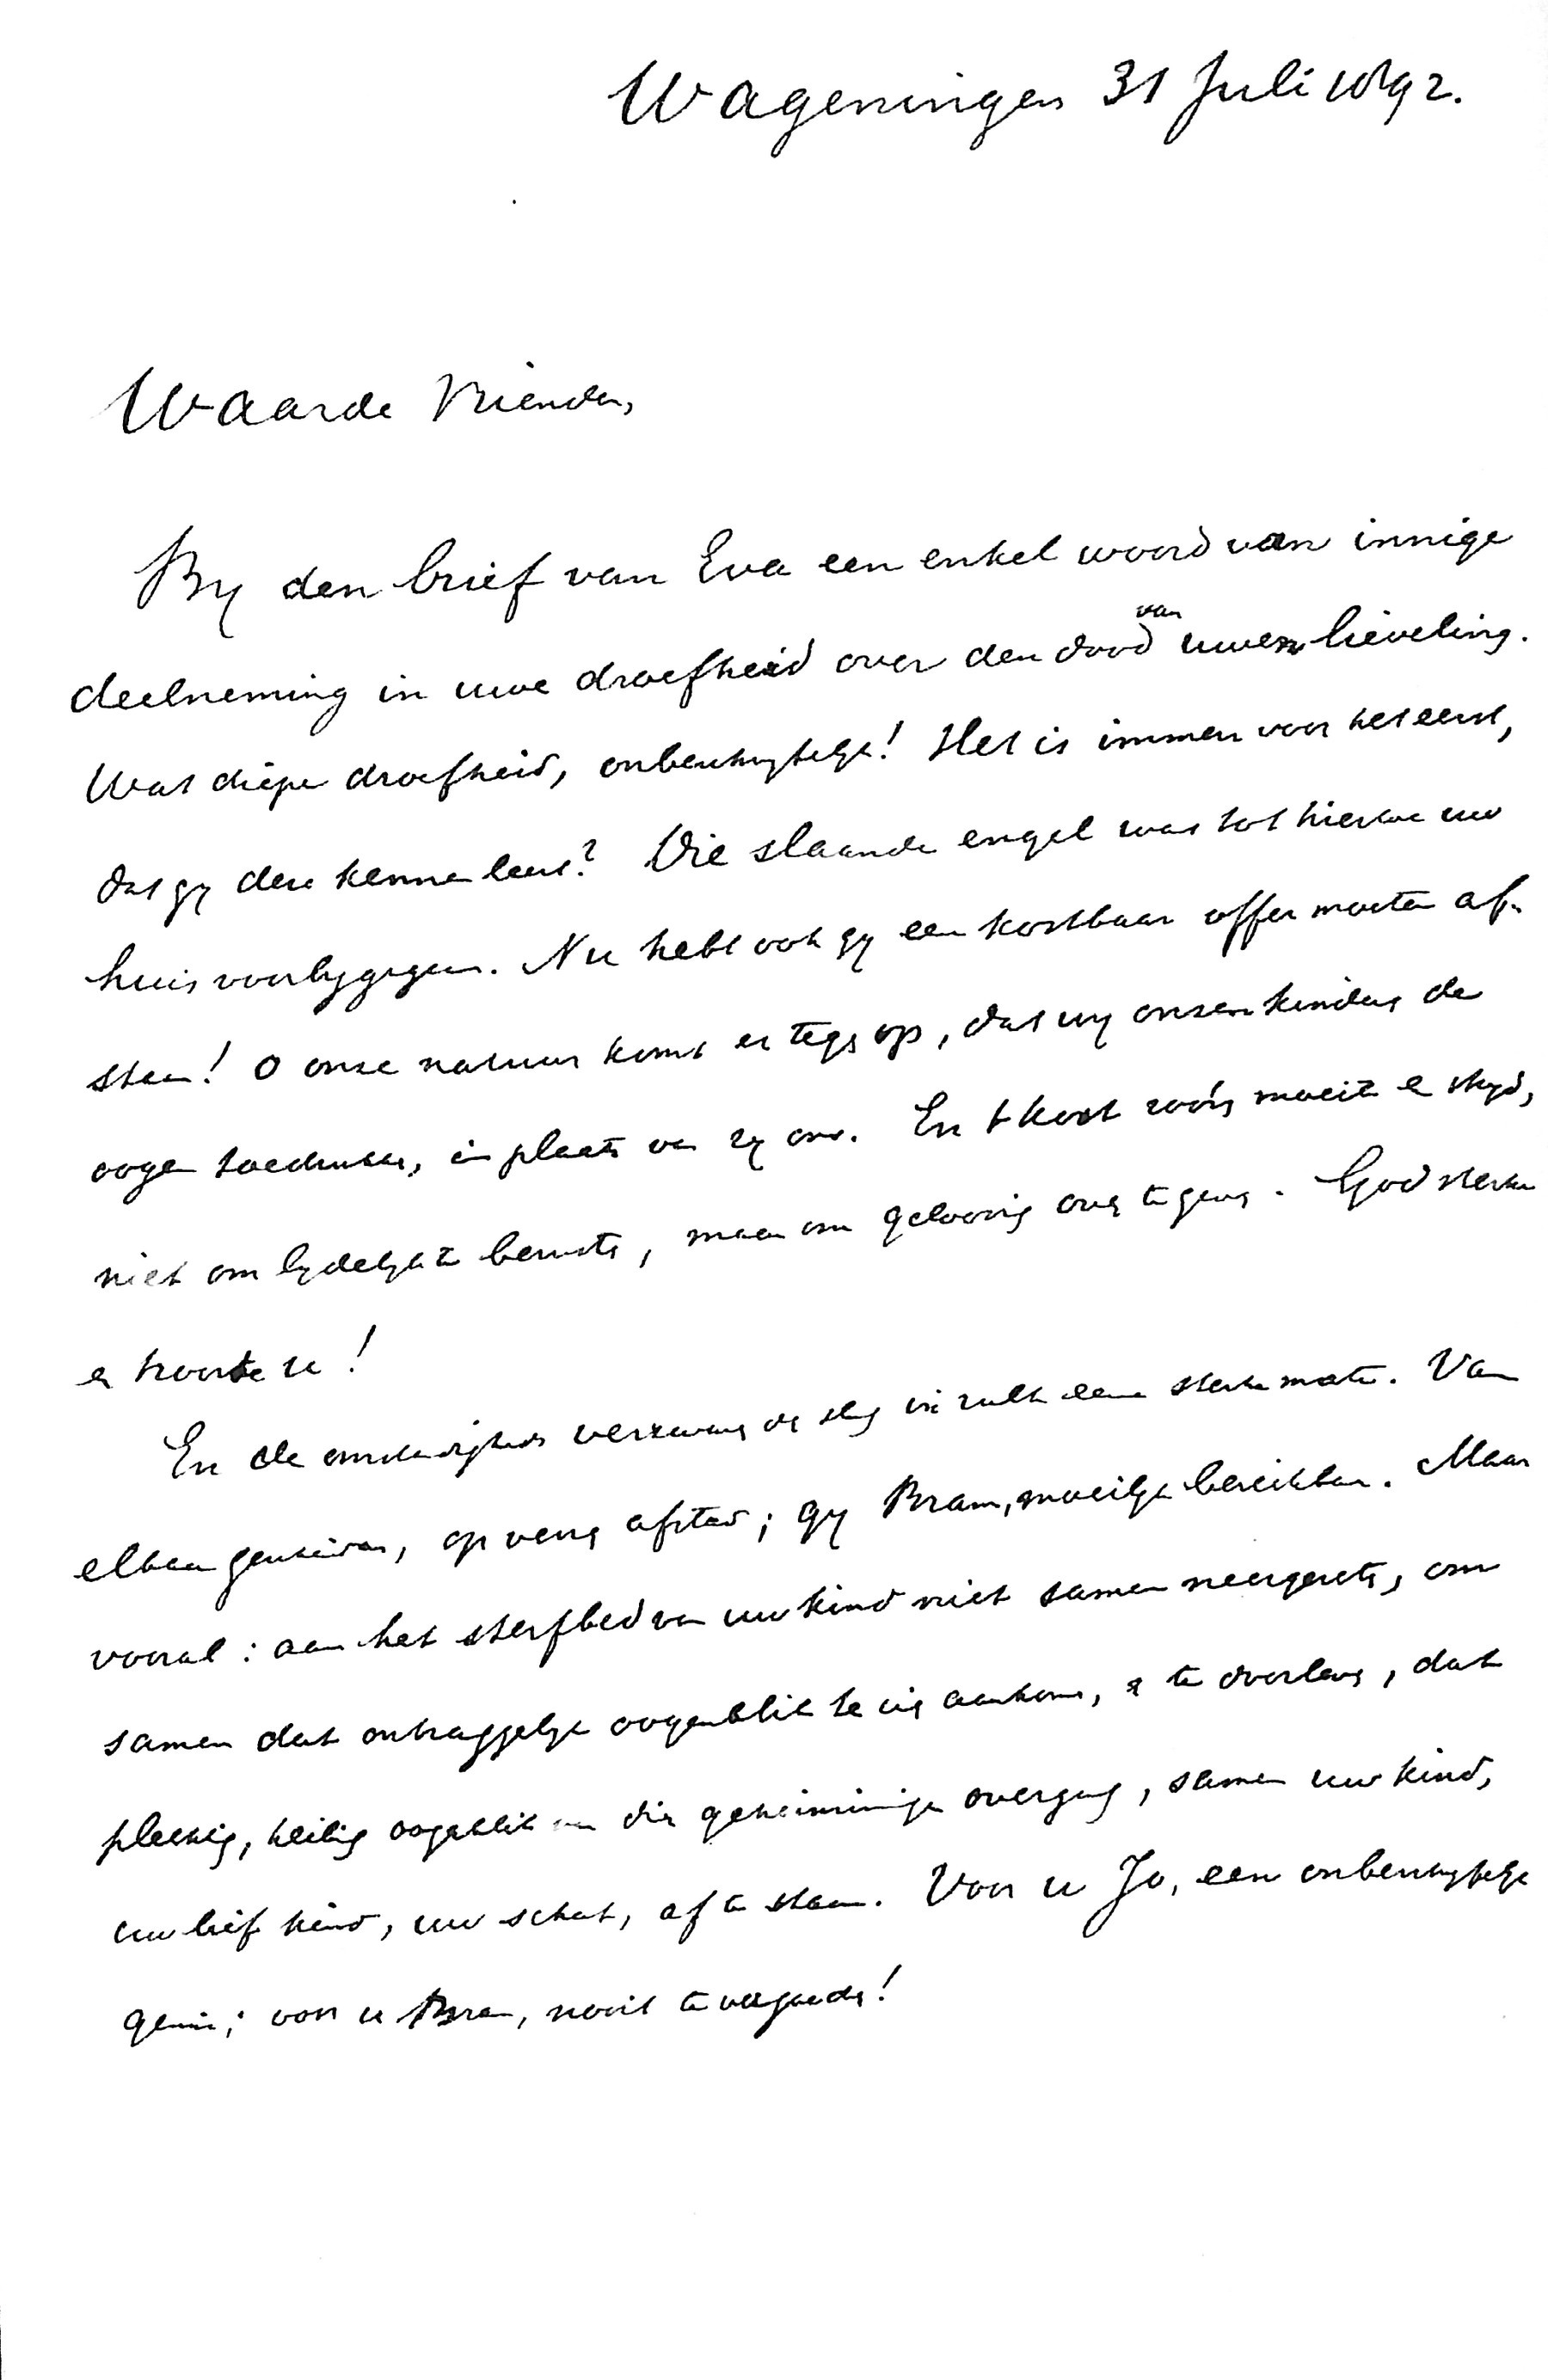 Wageningen 31 Juli 1892.
Waarde Vrienden,
By den brief van Eva een enkel woord van innige
deelneming in uwe droefheid over den dood van uwen lieveling.
Wat diepe droefheid, onbeschryfelyk! Het is immers voor het eerst,
dat gy deze kennen leert? Die slaande engel was tot hiertoe uw
huis voorbygegaan. Nu hebt ook gy een kostbaar offer moeten af-
staan! O onze natuur komt er tegen op, dat wy onzen kinderen de
oogen toedrukken, in plaats van zy ons. En 't kost zoo'n moeite en stryd,
niet om lydelyk te berusten, maar om geloovig over te geven. God sterke
en trooste u!
En de omstandigheden verzwaren de slag in zulk eene sterke mate. Van
elkaar gescheiden, op verren afstand; gy Bram, moeilyk bereikbaar. Maar
vooral: aan het sterfbed van uw kind niet samen neergezeten, om
samen dat ontzaggelyk oogenblik te zien aankomen, en te doorleven, dat
plechtig, heilig oogenblik van die geheimzinnige overgang, samen uw kind,
uw lief kind, uw schat, af te staan. Voor u Jo, een onbeschryfelyk
gemis; voor u Bram, nooit te vergoeden!